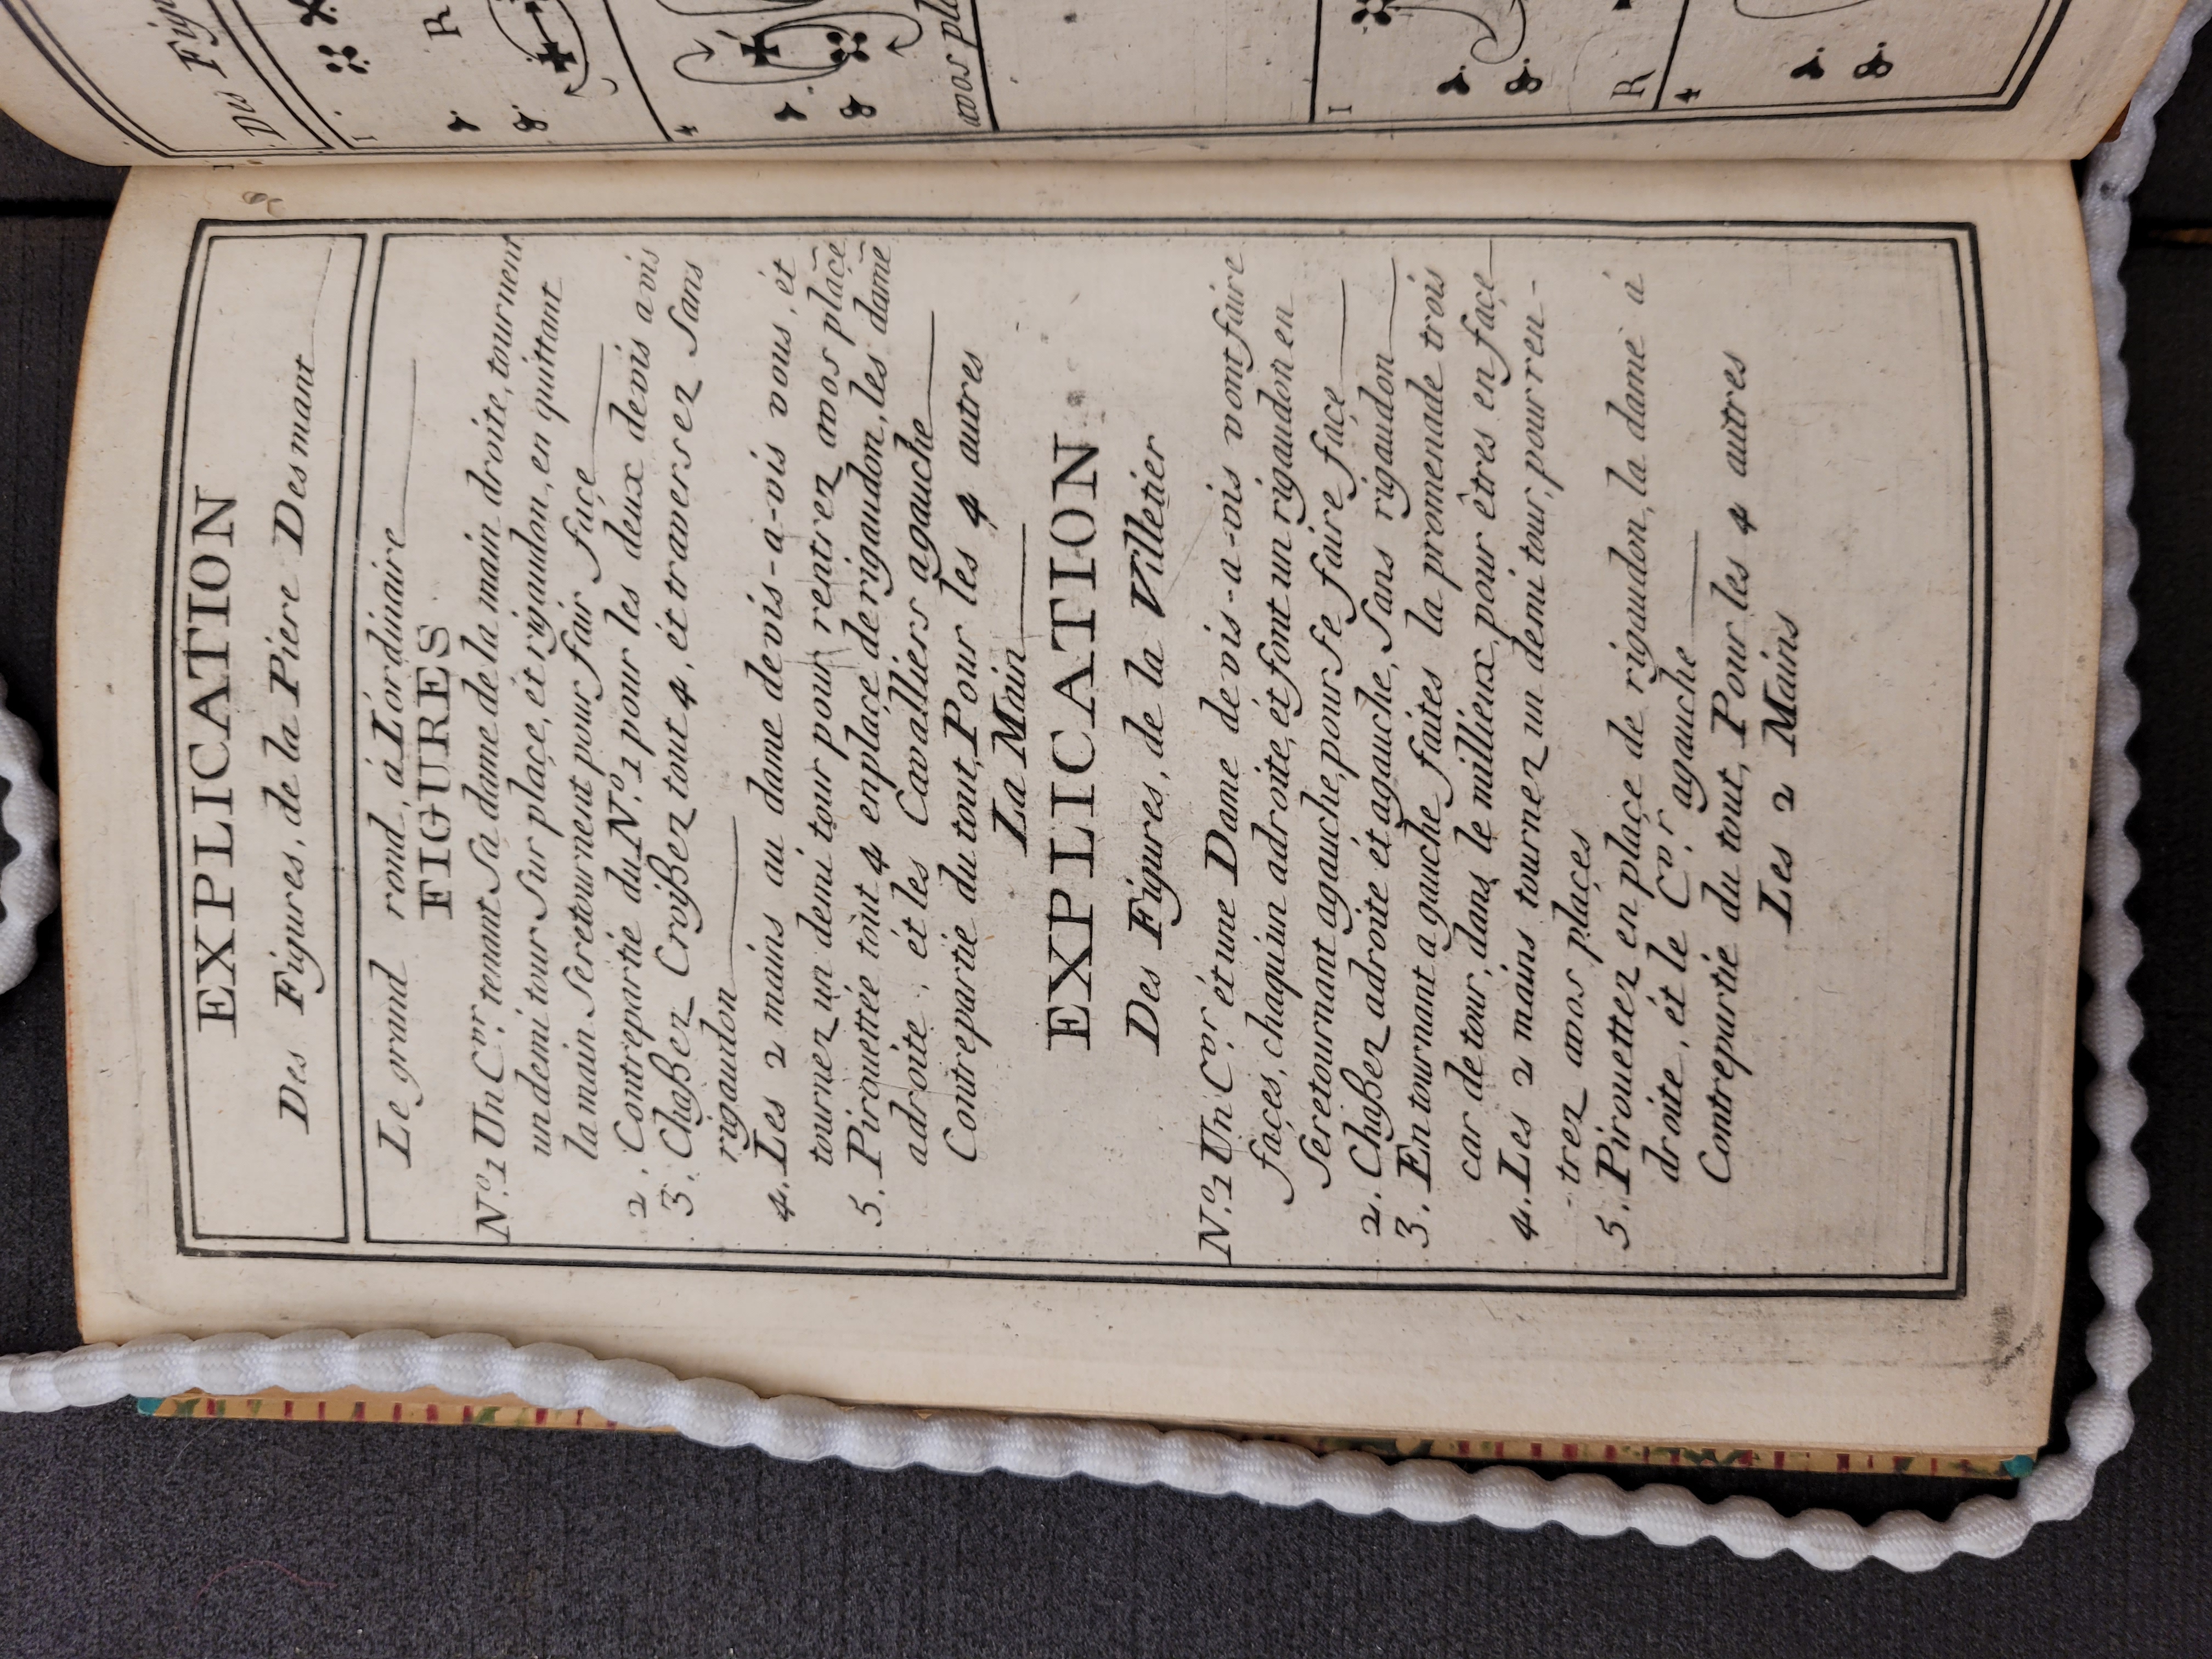 EXPLICATION
Des Figures, de la Piere Desmant
Le grand rond, á Lordinaire
FIGURES
N.º 1 Un C.vr, tenant Sa dame de la main droite, tournent
un demi tour Sur plaçe, ét rigaudon, en quittant
la main Seretournent pour fair façe
2. Contrepartie du N.º 1 pour les deux devis avis
3. Chaßez Croißez tout 4, ét traversez Sans
rigaudon
4. Les 2 mains au dame devis-a-vis vous, ét
tournez un demi tour pour rentrez avos plaçe
5. Pirouettée tout 4 enplaçe de rigaudon, les dame
adroite, ét les Cavalliers agauche
Contrepartie du tout, Pour les 4 autres
La Main
EXPLICATION
Des Figures, de la Villetier
N.º 1 Un C.vr, ét une Dame devis-a-vis vont faire
façes, chaquiun adroite, ét font un rigaudon en
Seretournant agauche, pour Se faire façe
2. Chaßez adroite ét agauche, Sans rigaudon
3. En tournant a gauche faites la promenade trois
car de tour, dans le millieux, pour êtres en façe
4. Les 2 mains tournez un demi tour, pour ren-
-trez avos plaçes
5. Pirouettez en plaçe de rigaudon, la dame á
droite, ét le C.vr agauche
Contrepartie du tout, Pour les 4 autres
Les 2 Mains
Des
1
R
4
avos
1
R
4